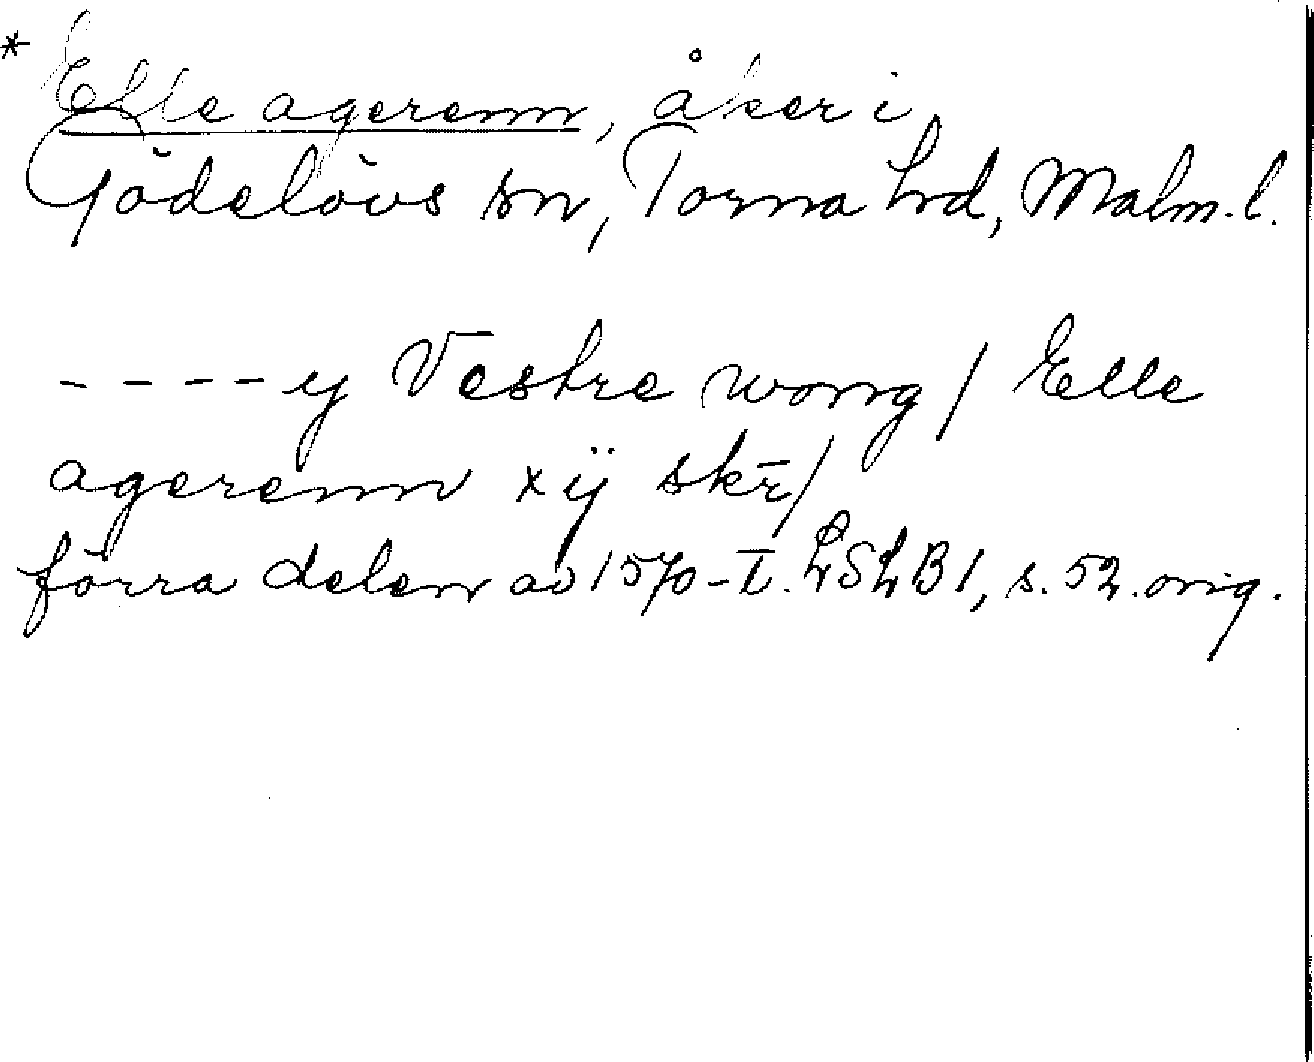 * Elle agerenn, åker i
Gödelövs sn, Torna hd, Malm. l.
---- ij Vestre wong / Elle
agerenn xij skr̄/
förra delen av 1570-t. LSLB1, s. 52. orig.